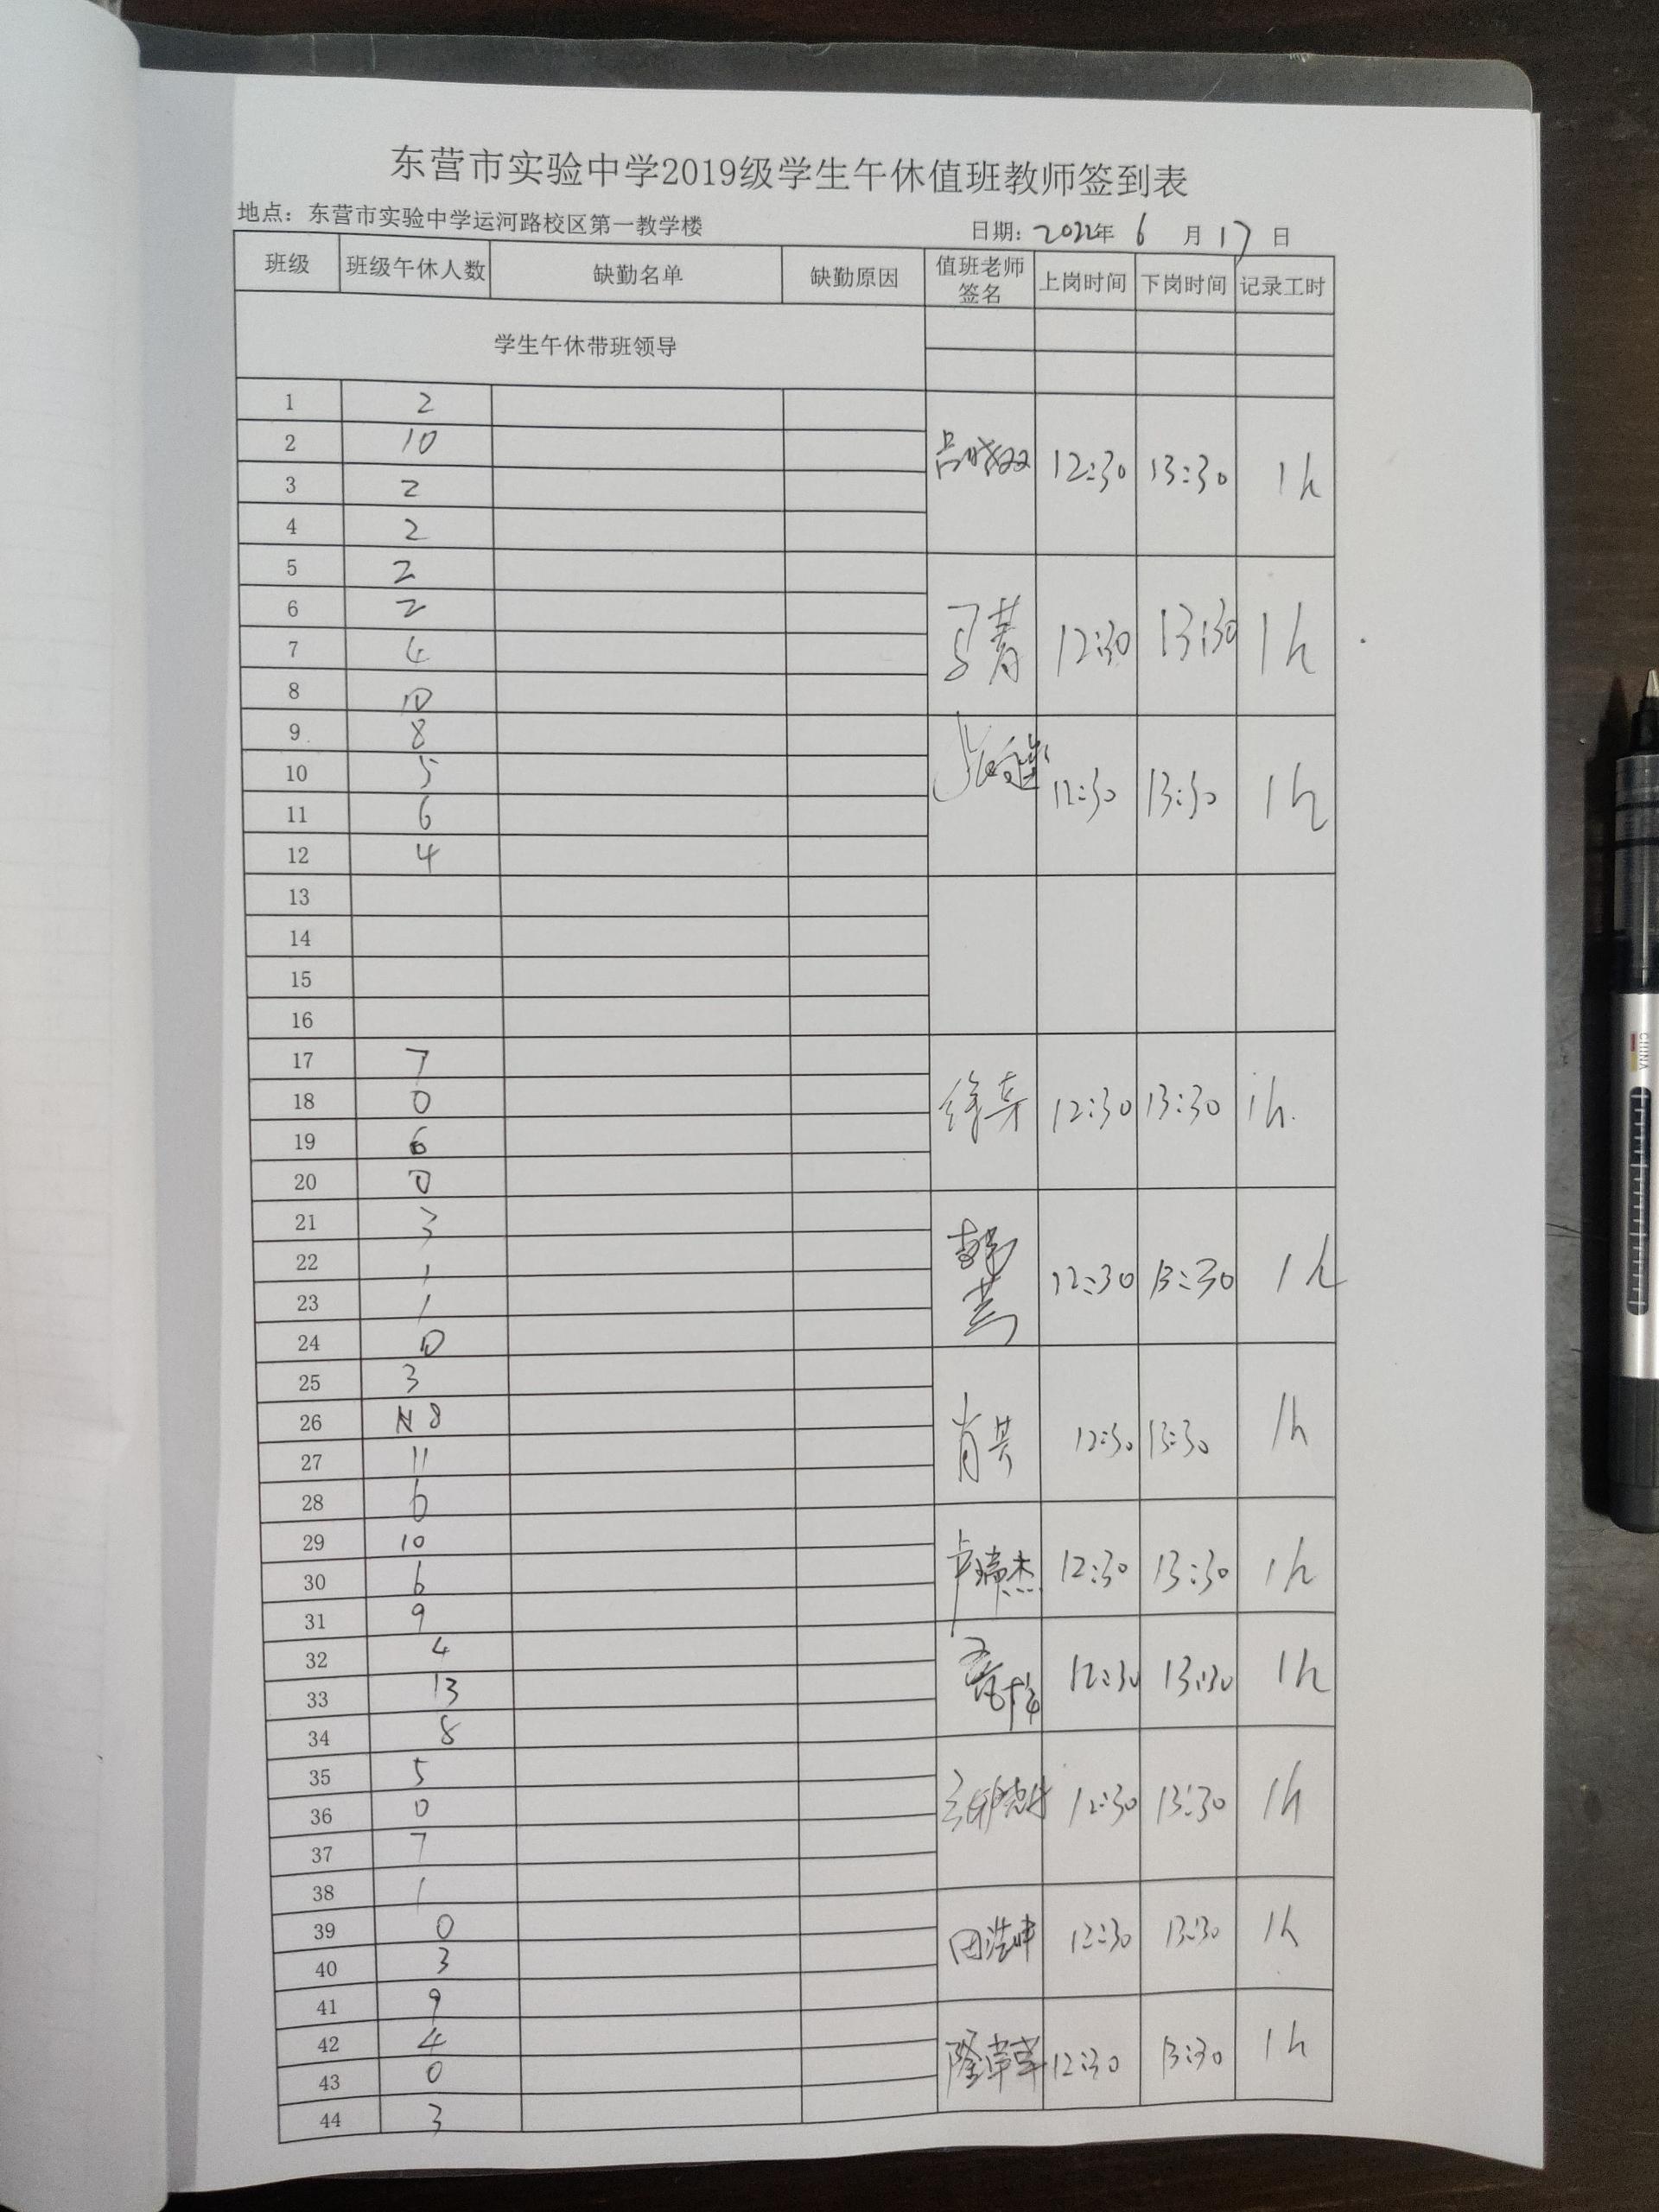 东营市实验中学2019级学生午休值班教师签到表
地点：东营市实验中学运河路校区第一教学楼 日期：2022年 6 月 17 日
班级 班级午休人数 缺勤名单 缺勤原因 值班老师签名 上岗时间 下岗时间 记录工时
学生午休带班领导
1 2
2 10 12:30 13:30 1h
3 2
4 2
5 2
6 2
7 4 12:30 13:30 1h
8 10
9 8
10 5
11 6 12:30 13:30 1h
12 4
13
14
15
16
17 7
18 0 12:30 13:30 1h.
19 6
20 0
21 3
22 1
23 1 12:30 13:30 1h
24 10
25 3
26 8
27 11 肖 12:30 13:30 1h
28 6
29 10
30 6 卢瑞杰 12:30 13:30 1h
31 9
32 4
33 13 12:30 13:30 1h
34 8
35 5
36 0 12:30 13:30 1h
37 7
38 1
39 0 田浩坤 12:30 13:30 1h
40 3
41 9
42 4 12:30 13:30 1h
43 0
44 3
CHINA